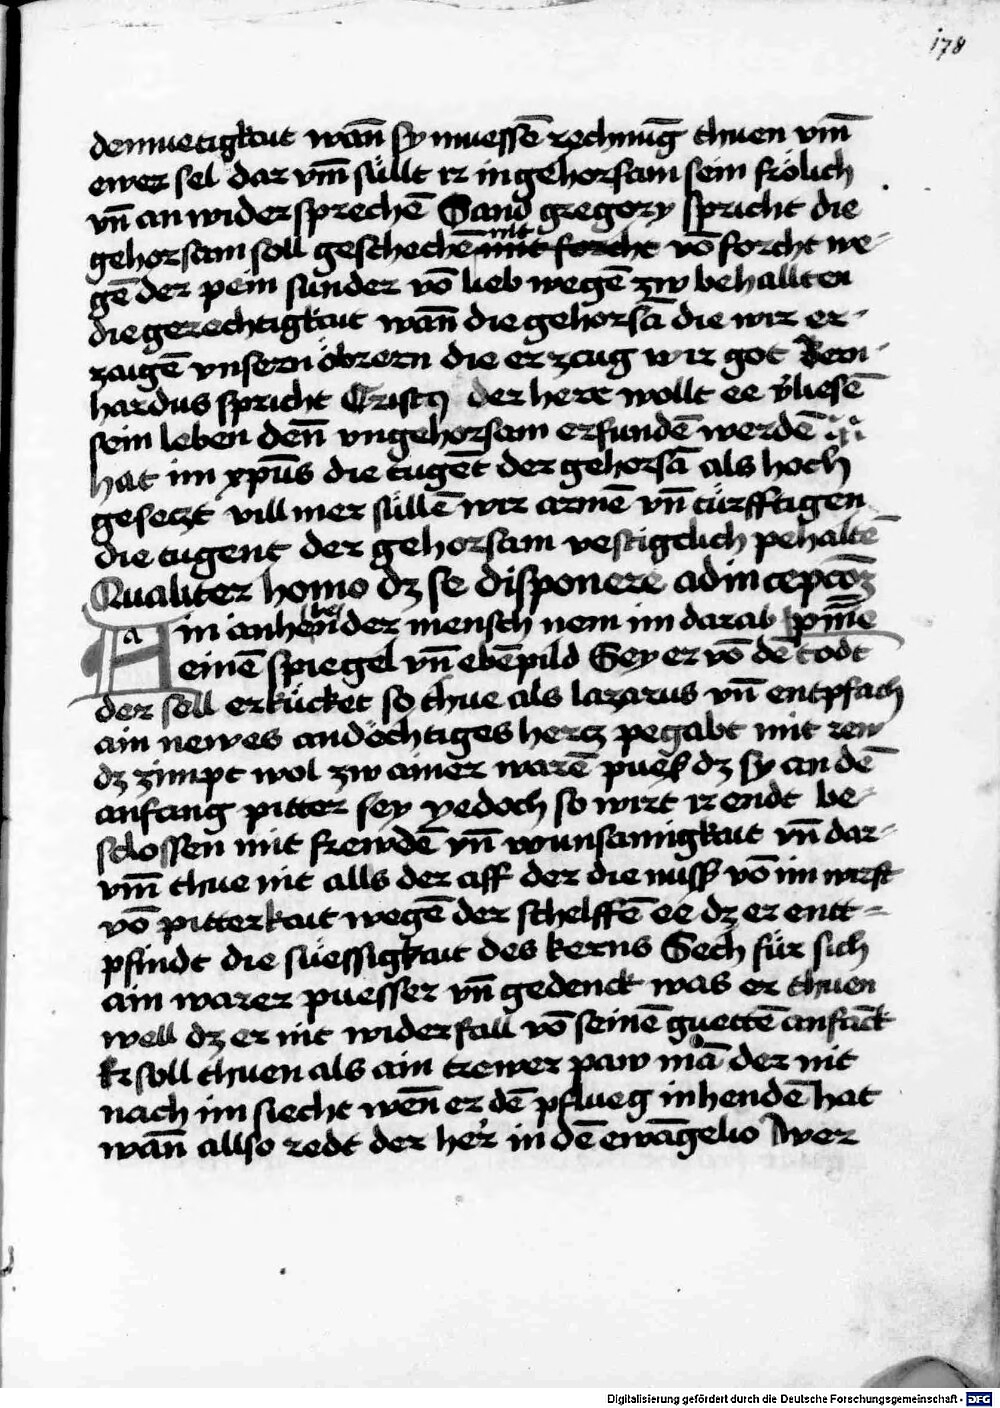 178
demuetigkait wan̄ sy muessē rechnūg thuen vm̄
ewer sel dar vm̄ süllt ir in gehorsam sein frölich
vn̄ an widersprechē Sand gregory spricht die
gehorsam soll geschechē nit mit forcht vō forcht we-
gē der pein sunder vō lieb wegē zw behallten
die gerechtigkait wan̄ die gehorsā die wir er-
zaigē vnsern öbrern die erzaig wir got Bern-
hardus spricht Cristꝯ der herr wollt ee v̄liesē
sein leben den̄ vngehorsam erfundē werdē
hat im xp̄us die tugēt der gehorsā als hoch
geseczt vill mer süllē wir armē vn̄ türfftigen
die tugent der gehorsam vestigclich pehaltē
Qualiter homo dꝫ se disponere ad incepcōꝫ
a in anhebender mensch nem im darab pn̄īe
einē spiegel vn̄ ebēpild Sey er vō dē todt
der sell erkücket so thue als lazarus vn̄ entpfach
ain newes andöchtiges hercz pegabt mit rew
dꝫ zimpt wol zw ainer warē pueß dꝫ sy an dē
anfang pitter sey yedoch so wirt ir endt be-
slossen mit frewdē vn̄ wunsamigkait vn̄ dar-
vm̄ thue nit alls der aff der die nuss vō im wirft
vō pitterkait wegē der schelffē ee dꝫ er entt-
pfindt die süessigkait des kerns Sech für sich
ain warer puesser vn̄ gedenck was er thuen
well dꝫ er nit widerfall vō seinē guettē anfāck
Er soll thuen als ain trewer paw mā der nit
nach im siecht wen̄ er dē pflueg in hendē hat
wan̄ allso redt der her̄ in dē ewāgelio Wer
Digitalisierung gefördert durch die Deutsche Forschungsgemeinschaft - DFG